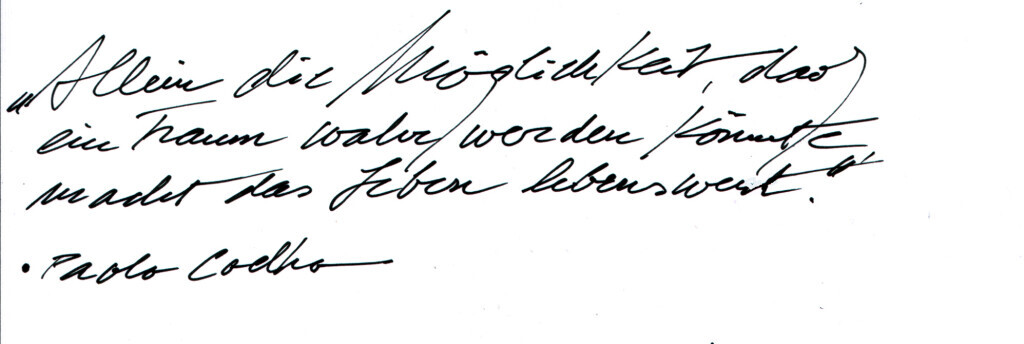 „Allein die Möglichkeit, daß
ein Traum wahr werden könnte,
macht das Leben lebenswert."
• Paolo Coelho